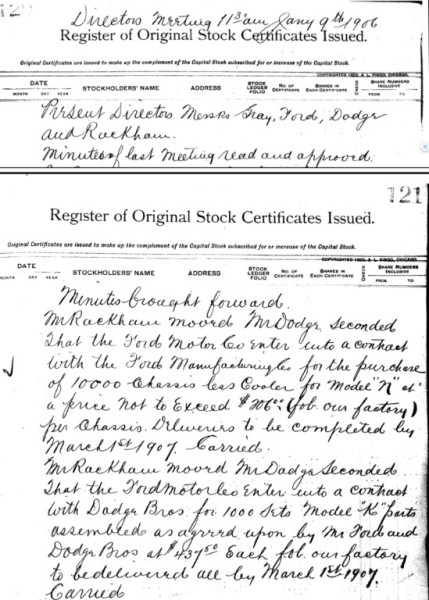 120
Directors Meeting 11 30 am Jany 9th 1906
Register of Original Stock Certificates Issued.
Original Certificates are issued to make up the complement of the Capital Stock subscribed for or increase of the Capital Stock.
COPYRIGHTED
CHICAGO.
DATE STOCKHOLDERS' NAME ADDRESS STOCK LEDGER FOLIO No. OF CERTIFICATE SHARES IN EACH CERTIFICATE SHARE NUMBERS INCLUSIVE
MONTH DAY YEAR FROM TO
Present Directors Messrs Gray, Ford, Dodge
and Rackham.
Minutes of last Meeting read and approved.
121
Register of Original Stock Certificates Issued.
Original Certificates are issued to make up the complement of the Capital Stock subscribed for or increase of the Capital Stock.
COPYRIGHTED
CHICAGO.
DATE STOCKHOLDERS' NAME ADDRESS STOCK LEDGER FOLIO No. OF CERTIFICATE SHARES IN EACH CERTIFICATE SHARE NUMBERS INCLUSIVE
MONTH DAY YEAR FROM TO
Minutes brought forward.
Mr Rackham moved Mr Dodge Seconded
That the Ford Motor Co Enter into a contract
with the Ford Manufacturing Co for the purchase
of 10000 Chassis less Cooler for Model "N" at
a price not to Exceed $206.00 (fob. our factory)
per Chassis. Deliveries to be completed by
March 1st 1907. Carried.
Mr Rackham moved Mr Dodge Seconded
That the Ford Motor Co Enter into a contract
with Dodge Bros. for 1000 Sets Model "K" parts
assembled as agreed upon by Mr Ford and
Dodge Bros at $437.50 Each fob. our factory
to be delivered all by March 1st 1907.
Carried